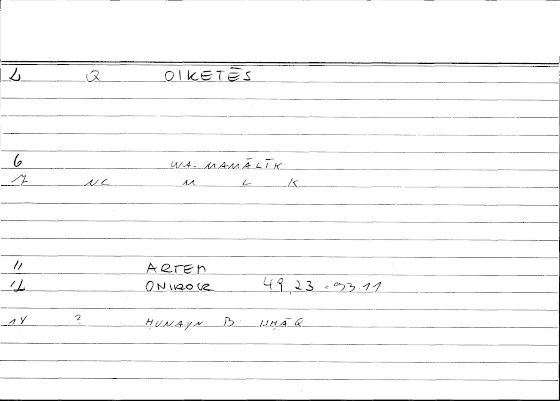 2 Q OIKETĒS
6 WA-MAMĀLĪK
7 NC M L K
11 ARTEM
12 ONIROCR 49,23 = 93.11
14 ? ḤUNAYN B ISḤĀQ